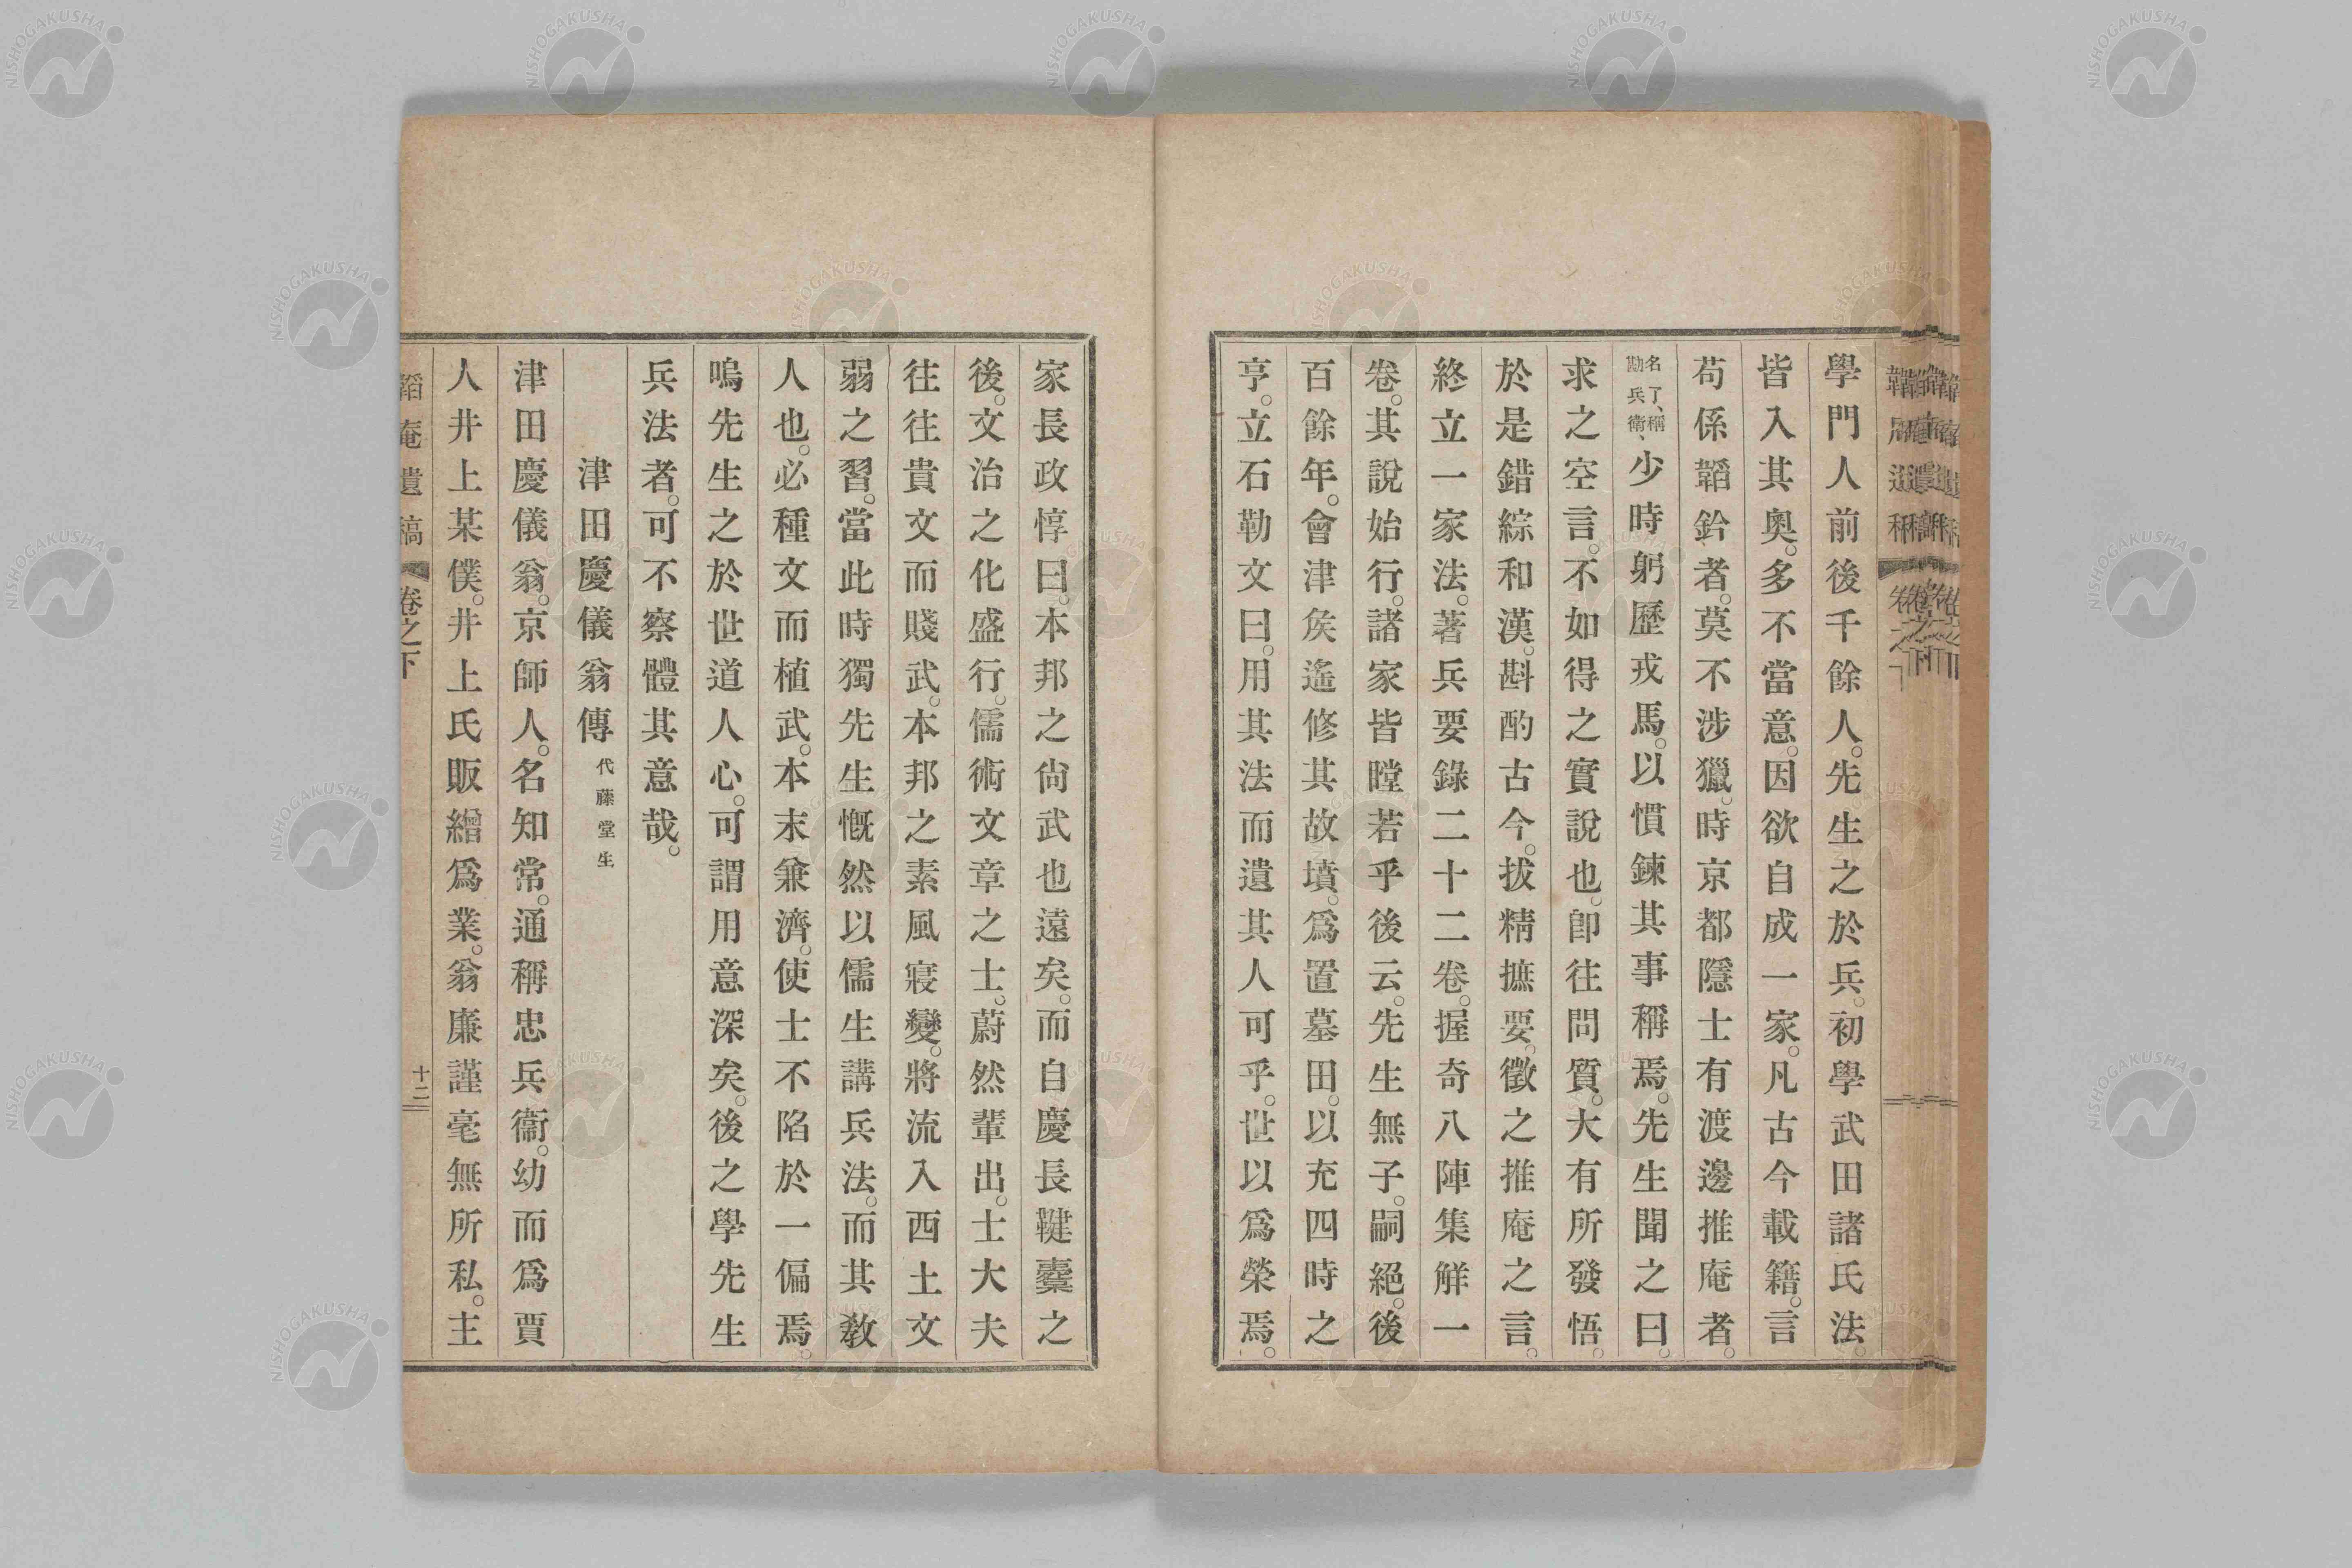 學門人前後千餘人。先生之於兵。初學武田諸氏法。
皆入其奧。多不當意。因欲自成一家。凡古今載籍。言
苟係韜鈐者。莫不涉獵。時京都隱士有渡邊推庵者。
名了、稱勘兵衞、少時躬歷戎馬。以慣鍊其事稱焉。先生聞之曰。
求之空言。不如得之實說也。卽往問質。大有所發悟。
於是錯綜和漢。斟酌古今。拔精摭要。徵之推庵之言。
終立一家法。著兵要錄二十二卷。握奇八陣集解一
卷。其說始行。諸家皆瞠若乎後云。先生無子。嗣絕。後
百餘年。會津矦遙修其故墳。爲置墓田。以充四時之
亨。立石勒文曰。用其法而遺其人可乎。世以爲榮焉。
家長政惇曰。本邦之尙武也遠矣。而自慶長鞬櫜之
後。文治之化盛行。儒術文章之士。蔚然輩出。士大夫
往往貴文而賤武。本邦之素風寢變。將流入西土文
弱之習。當此時獨先生慨然以儒生講兵法。而其敎
人也。必種文而植武。本末兼濟。使士不陷於一偏焉。
嗚先生之於世道人心。可謂用意深矣。後之學先生
兵法者。可不察體其意哉。
津田慶儀翁傳 代藤堂生
津田慶儀翁。京師人。名知常。通稱忠兵衞。幼而爲賈
人井上某僕。井上氏販繒爲業。翁廉謹毫無所私。主
韜庵遺稿 卷之下 十二